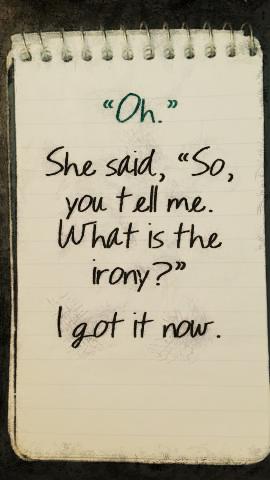 “Oh.”
She said, “So,
you tell me.
What is the
irony?”
I got it now.